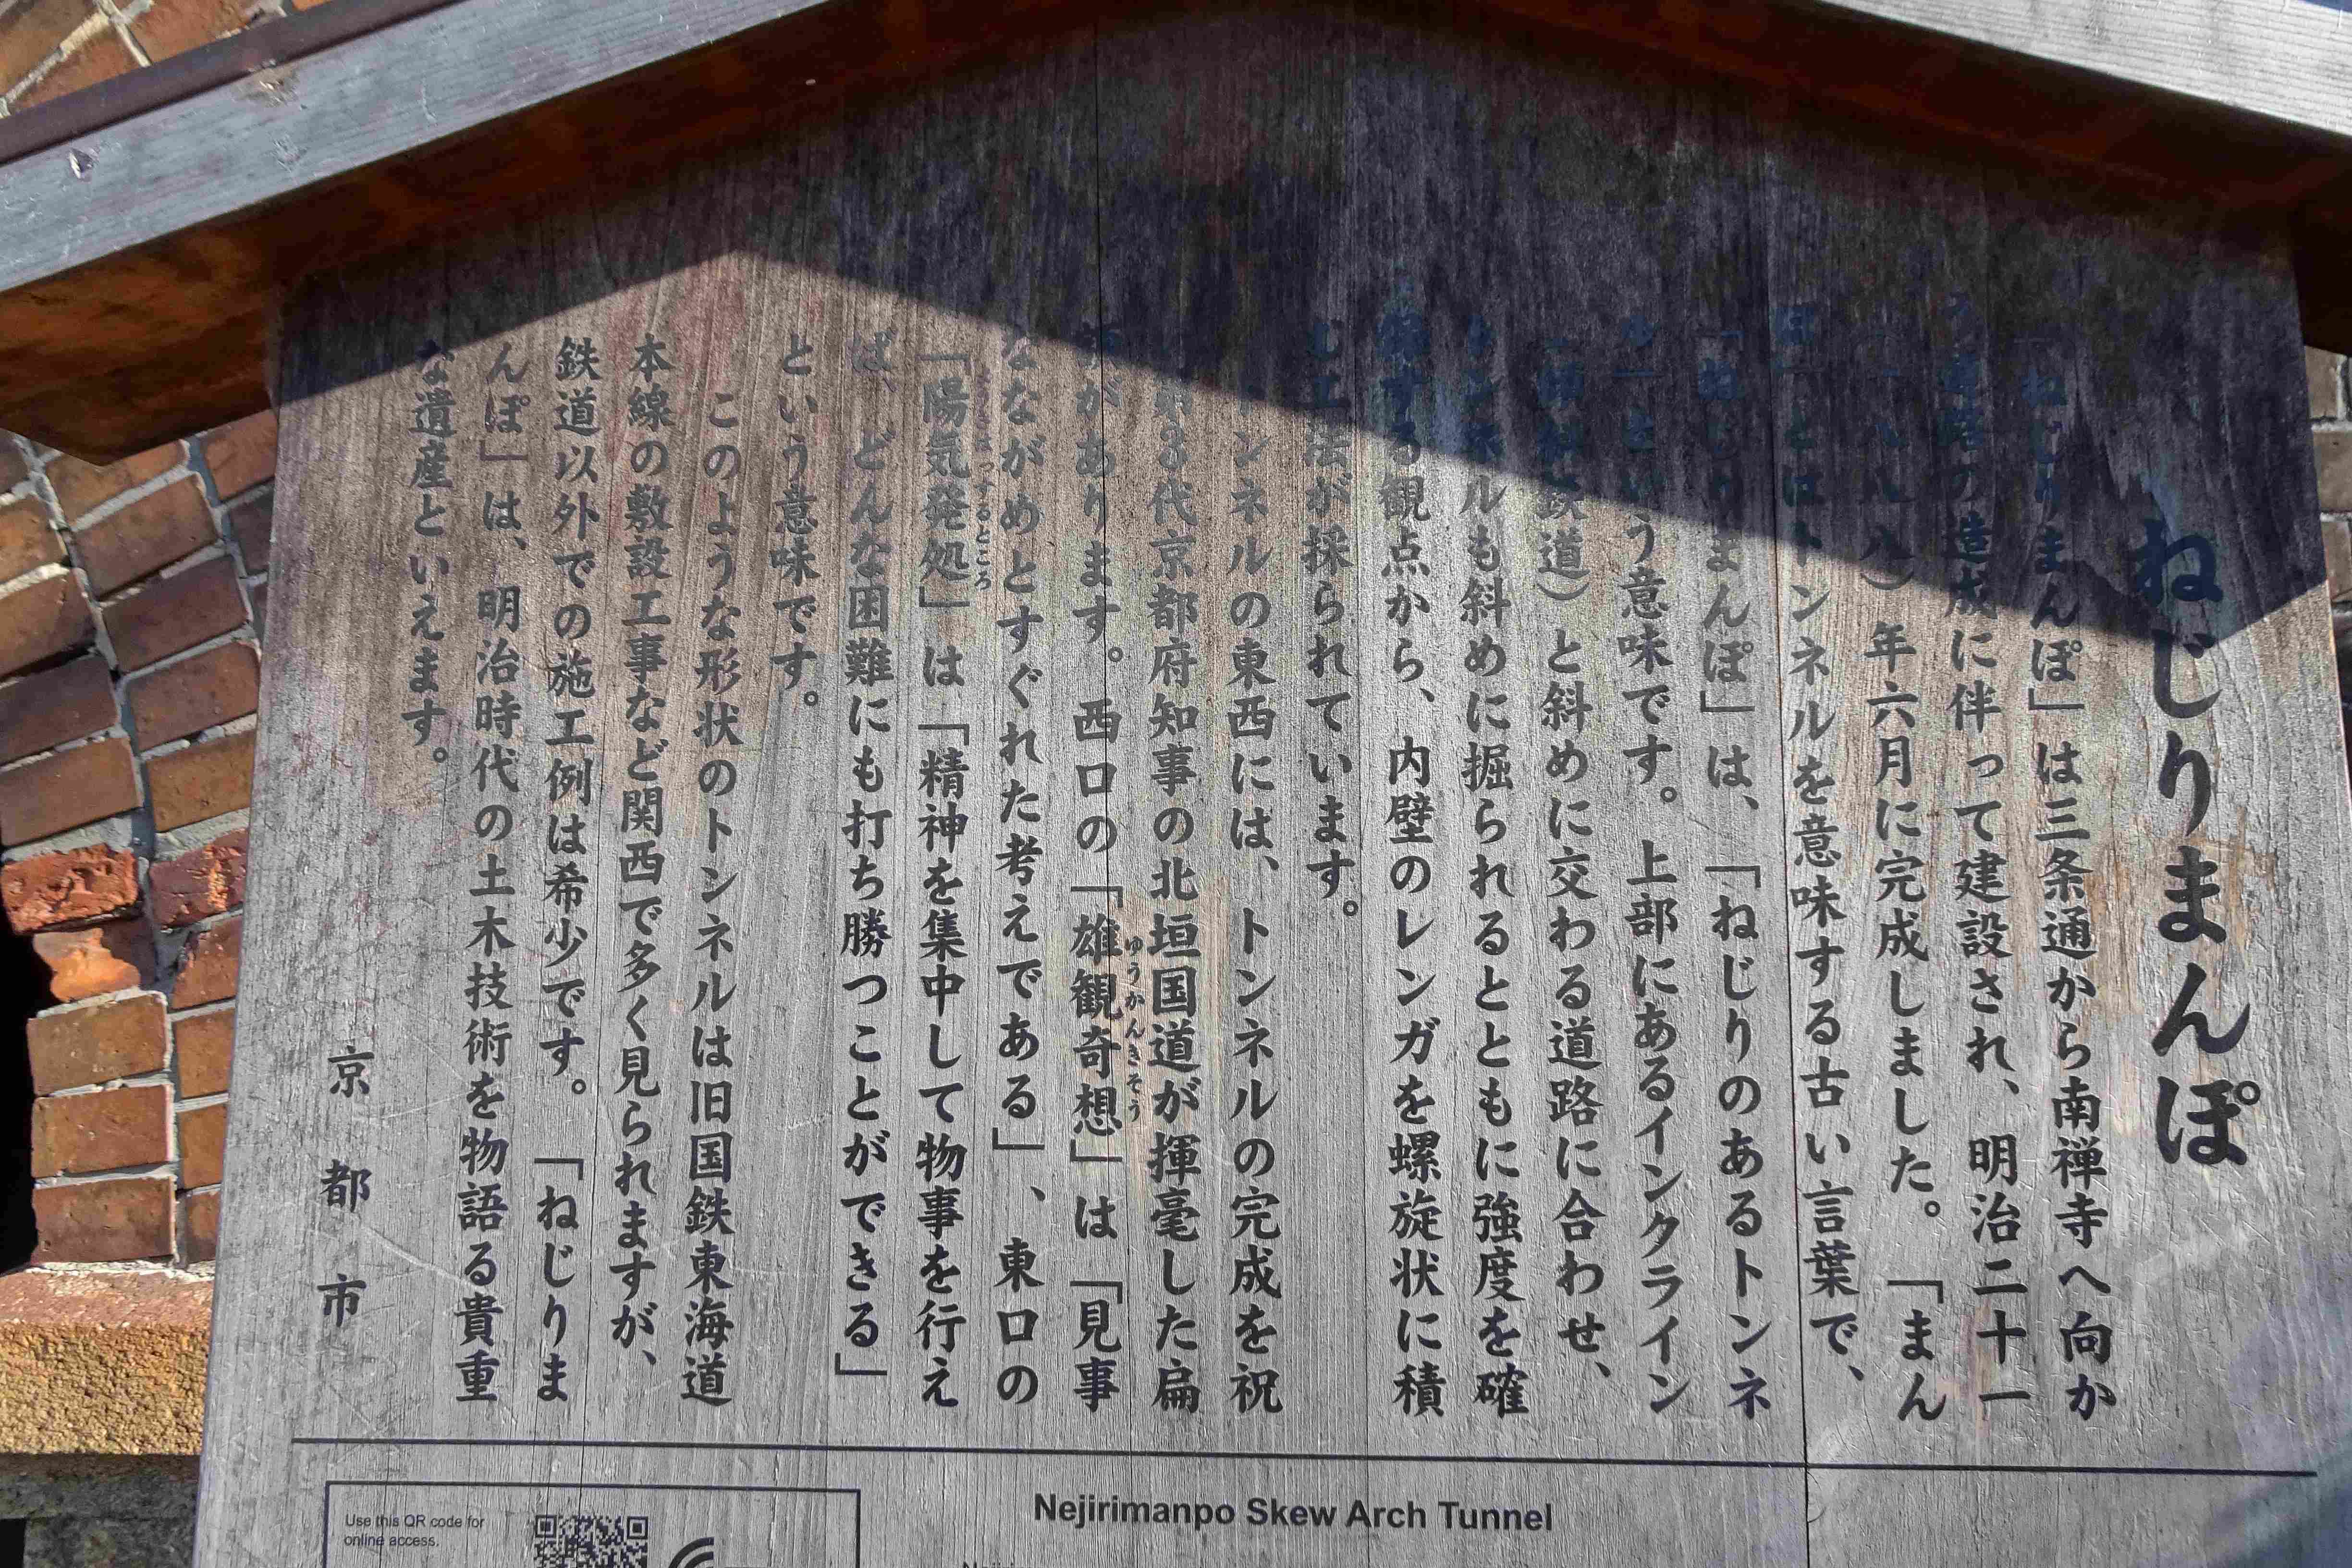 ねじりまんぽ
「ねじりまんぽ」は三条通から南禅寺へ向か
う道路の造成に伴って建設され、明治二十一
（一八八八）年六月に完成しました。「まん
ぽ」とはトンネルを意味する古い言葉で、
「ねじりまんぽ」は、「ねじりのあるトンネ
ル」という意味です。上部にあるインクライン
（傾斜鉄道）と斜めに交わる道路に合わせ、
トンネルも斜めに掘られるとともに強度を確
保する観点から、内壁のレンガを螺旋状に積
む工法が採られています。
トンネルの東西には、トンネルの完成を祝
第3代京都府知事の北垣国道が揮毫した扁
額があります。西口の「雄観奇想」は「見事
ゆうかんきそう
なながめとすぐれた考えである」、東口の
「陽気発処」は「精神を集中して物事を行え
ようきはっするところ
ば、どんな困難にも打ち勝つことができる」
という意味です。
このような形状のトンネルは旧国鉄東海道
本線の敷設工事など関西で多く見られますが、
鉄道以外での施工例は希少です。「ねじりま
んぽ」は、明治時代の土木技術を物語る貴重
な遺産といえます。
京都市
Nejirimanpo Skew Arch Tunnel
Use this QR code for
online access.